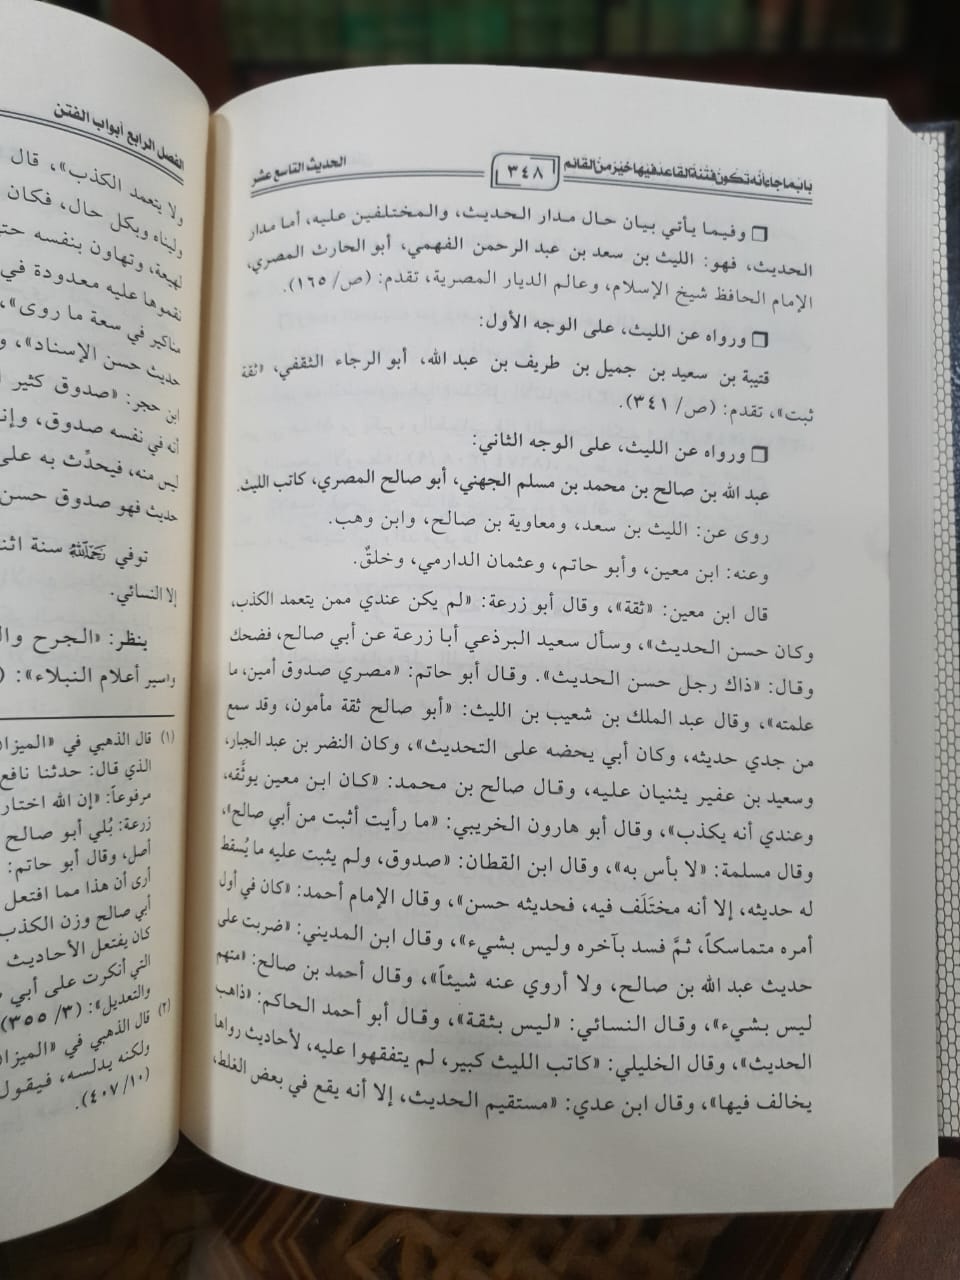 باب ما جاء أنه تكون فتنة القاعد فيها خير من القائم
٣٤٨
الحديث التاسع عشر
❒ وفيما يأتي بيان حال مدار الحديث، والمختلفين عليه، أما مدار
الحديث، فهو: الليث بن سعد بن عبد الرحمن الفهمي، أبو الحارث المصري،
الإمام الحافظ شيخ الإسلام، وعالم الديار المصرية، تقدم: (ص/ ١٦٥).
❒ ورواه عن الليث، على الوجه الأول:
قتيبة بن سعيد بن جميل بن طريف بن عبد الله، أبو الرجاء الثقفي، «ثقة
ثبت»، تقدم: (ص/ ٣٤١).
❒ ورواه عن الليث، على الوجه الثاني:
عبد الله بن صالح بن محمد بن مسلم الجهني، أبو صالح المصري، كاتب الليث.
روى عن: الليث بن سعد، ومعاوية بن صالح، وابن وهب.
وعنه: ابن معين، وأبو حاتم، وعثمان الدارمي، وخلقٌ.
قال ابن معين: «ثقة»، وقال أبو زرعة: «لم يكن عندي ممن يتعمد الكذب،
وكان حسن الحديث»، وسأل سعيد البرذعي أبا زرعة عن أبي صالح، فضحك
وقال: «ذاك رجل حسن الحديث». وقال أبو حاتم: «مصري صدوق أمين، ما
علمته»، وقال عبد الملك بن شعيب بن الليث: «أبو صالح ثقة مأمون، وقد سمع
من جدي حديثه، وكان أبي يحضه على التحديث»، وكان النضر بن عبد الجبار،
وسعيد بن عفير يثنيان عليه، وقال صالح بن محمد: «كان ابن معين يوثَّقه،
وعندي أنه يكذب»، وقال أبو هارون الخريبي: «ما رأيت أثبت من أبي صالح»،
وقال مسلمة: «لا بأس به»، وقال ابن القطان: «صدوق، ولم يثبت عليه ما يُسقط
له حديثه، إلا أنه مختَلَف فيه، فحديثه حسن»، وقال الإمام أحمد: «كان في أول
أمره متماسكاً، ثمَّ فسد بآخره وليس بشيء»، وقال ابن المديني: «ضربت على
حديث عبد الله بن صالح، ولا أروي عنه شيئاً»، وقال أحمد بن صالح: «متهم
ليس بشيء»، وقال النسائي: «ليس بثقة»، وقال أبو أحمد الحاكم: «ذاهب
الحديث»، وقال الخليلي: «كاتب الليث كبير، لم يتفقهوا عليه، لأحاديث رواها
يخالف فيها»، وقال ابن عدي: «مستقيم الحديث، إلا أنه يقع في بعض الغلط،
الفصل الرابع أبواب الفتن
ولا يتعمد الكذب»، قال
وليناه وبكل حال، فكان
لهيعة، وتهاون بنفسه حتى
نقموها عليه معدودة في
مناكير في سعة ما روى»،
حديث حسن الإسناد»، و
ابن حجر: «صدوق كثير
أنه في نفسه صدوق، وإن
ليس منه، فيحدِّث به على
حديث فهو صدوق حسن
توفي رَحِمَهُ اللَّهُ سنة اثنت
إلا النسائي.
ينظر: «الجرح وال
و«سير أعلام النبلاء»: (
(١) قال الذهبي في «الميزان
الذي قال: حدثنا نافع
مرفوعاً: «إن الله اختار
زرعة: بُلي أبو صالح
أصل، وقال أبو حاتم:
أرى أن هذا مما افتعل
أبي صالح وزن الكذب
كان يفتعل الأحاديث
التي أنكرت على أبي
والتعديل»: (٣/ ٣٥٥)
(٢) قال الذهبي في «الميزان
ولكنه يدلسه، فيقول
(١٠/ ٤٠٧).